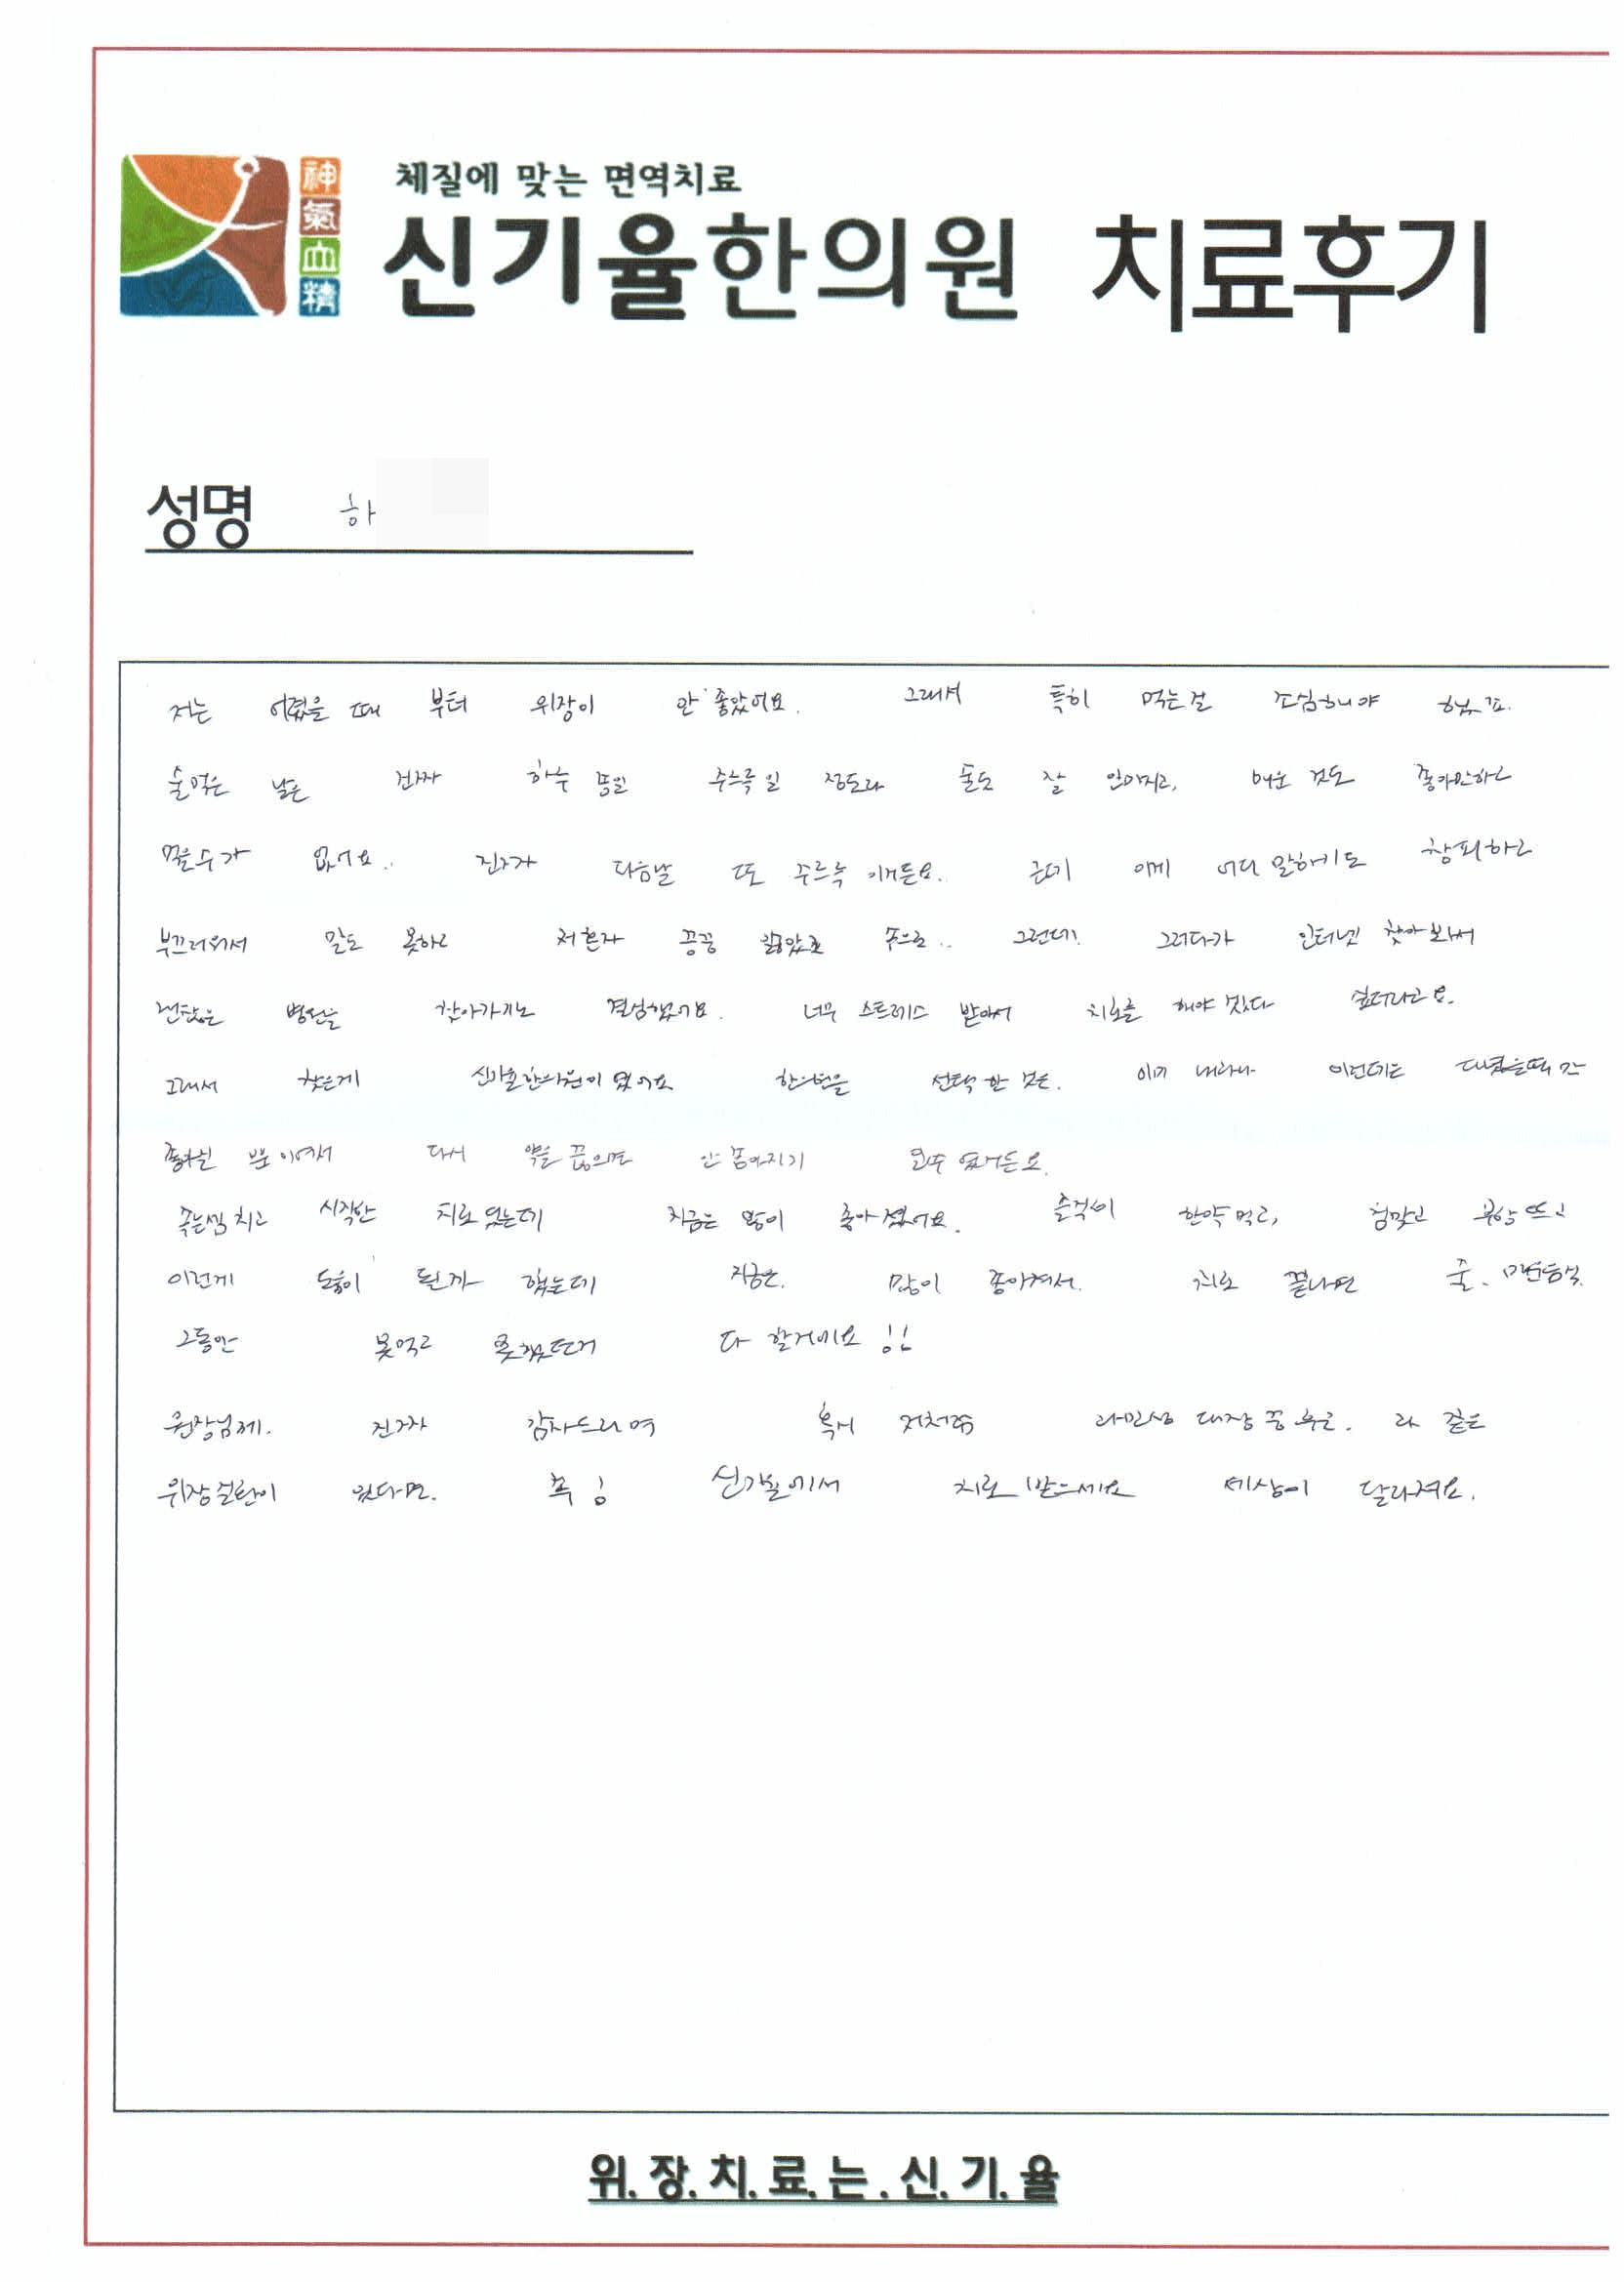 神
氣
血
精
체질에 맞는 면역치료
신기율한의원 치료후기
성명 하
저는 어렸을 때 부터 위장이 안 좋았어요. 그래서 특히 먹는걸 조심해야 했고.
술먹은 날은 진짜 하루 종일 주르륵일 정도라 술도 잘 안마시고, 매운 것도 좋아만하고
먹을수가 없어요.. 진짜 다음날 또 주르륵 이거든요.. 근데 이게 어디 말하기도 창피하고
부끄러워서 말도 못하고 저혼자 끙끙 앓았고 속으로.. 그런데. 그러다가 인터넷 찾아봐서
괜찮은 병원을 찾아가기로 결심했어요. 너무 스트레스 받아서 치료를 해야 겠다 싶더라고요.
그래서 찾은게 신기율한의원이 였어요 한의원을 선택 한 것은. 이런데는
뿐 이여서 다시 약을 끊으면 안 좋아지기 일수 였거든요.
속는셈 치고 시작한 치료 였는데 지금은 많이 좋아 졌어요. 한약 먹고, 침맞고 부항 뜨고
이런게 도움이 될까 했는데 지금은. 많이 좋아져서. 치료 끝나면 술.
그동안 못먹고 못했던거 다 할거에요 !!
원장님께. 진짜 감사드리며 혹시 저처럼 과민성 대장 증후군. 과 같은
위장질환이 있다면. 꼭 ! 신기율에서 치료 받으세요 세상이 달라져요.
위.장.치.료.는.신.기.율